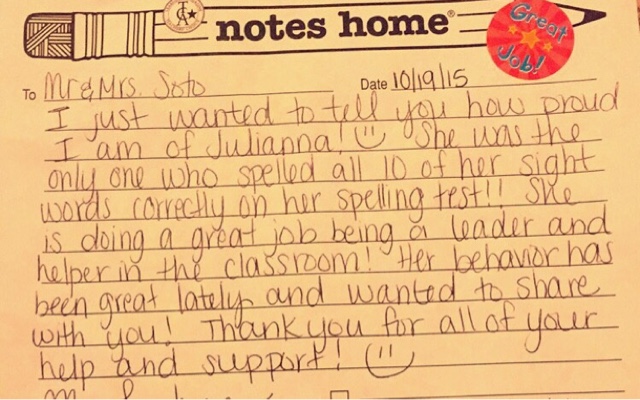 notes home®
Great Job!
To Mr & Mrs. Soto Date 10/19/15
I just wanted to tell you how proud
I am of Julianna! She was the
only one who spelled all 10 of her sight
words correctly on her spelling test!! She
is doing a great job being a leader and
helper in the classroom! Her behavior has
been great lately and wanted to share
with you! Thank you for all of your
help and support!